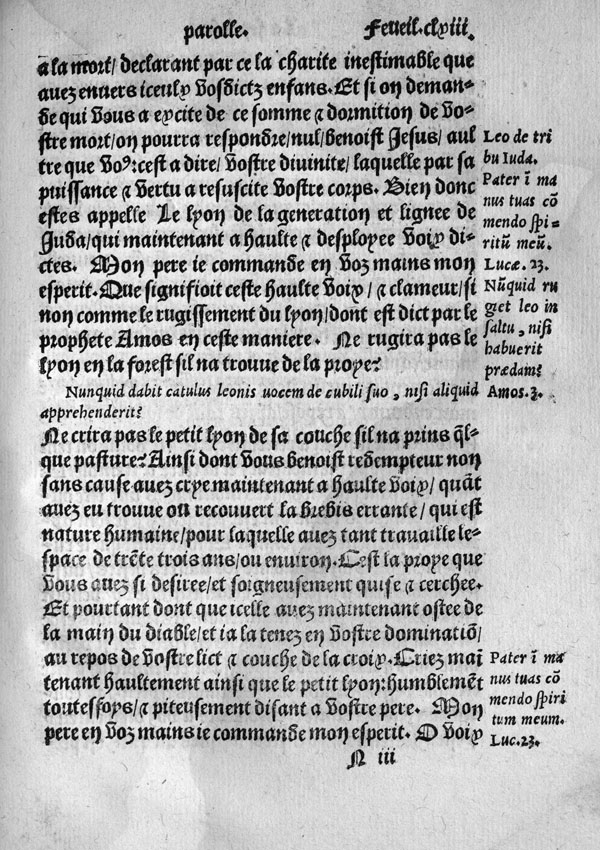 parolle. Feueil. clxiii.
a la mort/ declarant par ce la charite inestimable que
auez enuers iceulx vosdictz enfans. Et si on deman-
de qui vous a excite de ce somme ⁊ dormition de vo-
stre mort/ on pourra respondre/ nul/ benoist Jesus/ aul
tre que voꝰ: cest a dire/ vostre diuinite/ laquelle par sa
puissance ⁊ vertu a resuscite vostre corps. Bien donc
estes appelle Le lyon de la generation et lignee de
Juda/ qui maintenant a haulte ⁊ desployee voix di-
ctes. Mon pere ie commande en voz mains mon
esperit. Que signifioit ceste haulte voix/ ⁊ clameur/ si
non comme le rugissement du lyon/ dont est dict par le
prophete Amos en ceste maniere. Ne rugira pas le
lyon en la forest sil na trouue de la proye?
Leo de tri
bu Iuda.
Pater ī ma
nus tuas cō
mendo spi=
ritū meū.
Lucæ. 23.
Nūquid ru
get leo in
saltu, nisi
habuerit
prædam?
Amos. 3.
Nunquid dabit catulus leonis uocem de cubili suo, nisi aliquid
apprehenderit?
Ne crira pas le petit lyon de sa couche sil na prins q̄l-
que pasture? Ainsi dont vous benoist redēmpteur non
sans cause auez crye maintenant a haulte voix/ quāt
auez eu trouue ou recouuert la brebis errante/ qui est
nature humaine/ pour laquelle auez tant trauaille le-
space de trēte trois ans/ ou enuiron. Cest la proye que
vous auez si desiree/ et soigneusement quise ⁊ cerchee.
Et pourtant dont que icelle auez maintenant ostee de
la main du diable/ et ia la tenez en vostre dominatiō/
au repos de vostre lict ⁊ couche de la croix. Criez maī
tenant haultement ainsi que le petit lyon: humblemēt
toutesfoys/ ⁊ piteusement disant a vostre pere. Mon
pere en voz mains ie commande mon esperit. O voix
Pater ī ma
nus tuas cō
mendo spiri
tum meum.
Luc. 23.
N iii